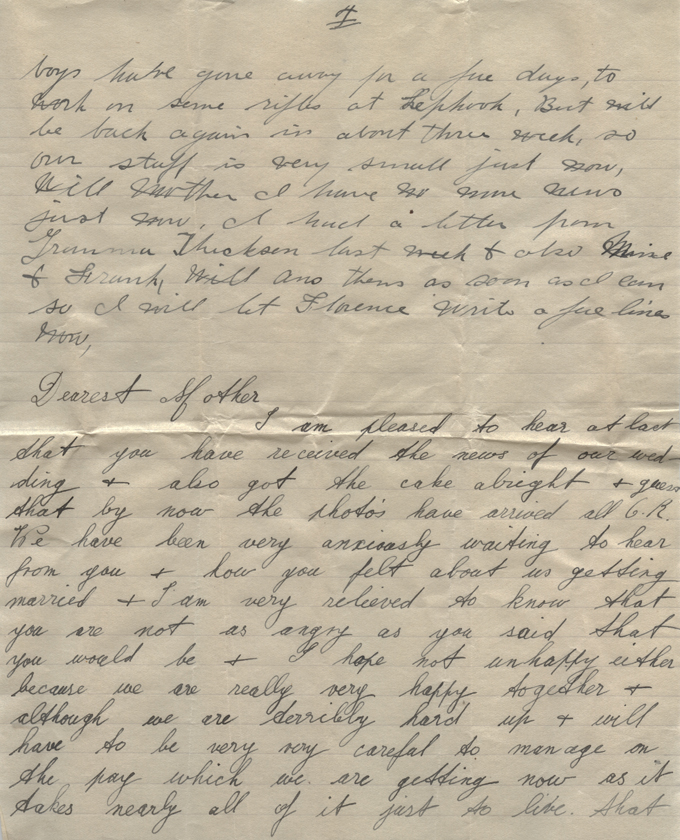 4
boys have gone away for a few days, to
work on some rifles at Lephook, But will
be back again in about three week, so
our staff is very small just now,
Will Mother I have no more news
just now, I had a letter from
Gramma Thickson last week & also Mine
& Frank, Will ans them as soon as I can
so I will let Florence write a few lines
Now,
Dearest Mother
I am pleased to hear at last
that you have received the news of our wed
ding & also got the cake alright & guess
that by now the photo's have arrived all O.K.
We have been very anxiously waiting to hear
from you & how you felt about us getting
married & I am very relieved to know that
you are not as angry as you said that
you would be & I hope not unhappy either
because we are really very happy together &
although we are terribly hard up & will
have to be very very careful to manage on
the pay which we are getting now as it
takes nearly all of it just to live. That